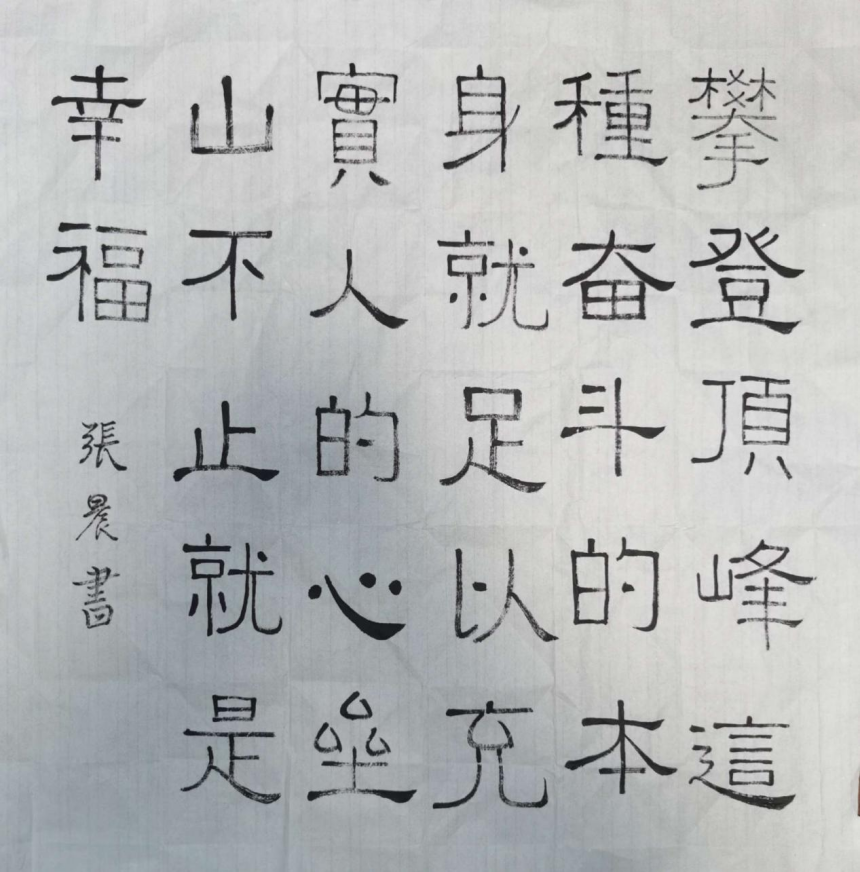 攀登頂峰這
種奋斗的本
身就足以充
實人的心垒
山不止就是
幸福
張晨書